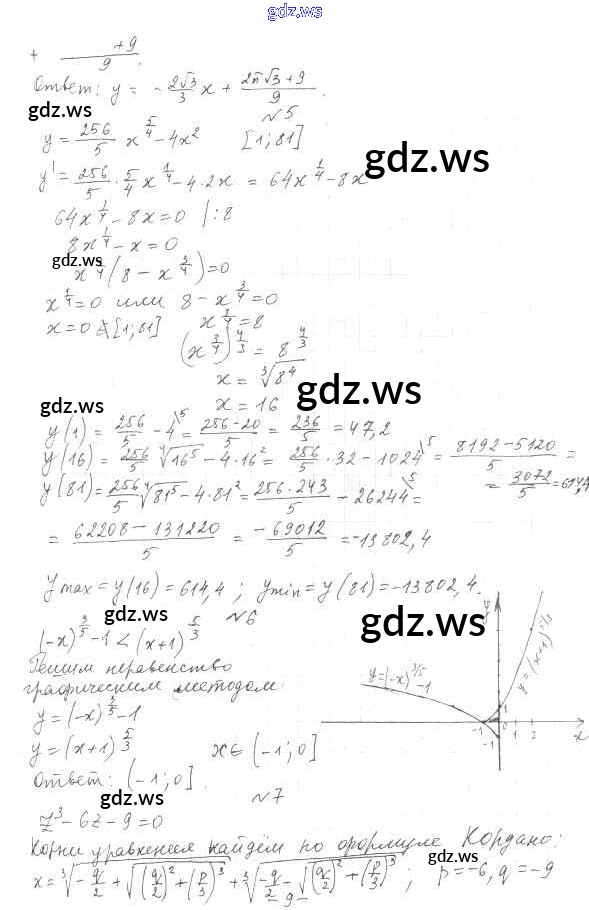 gdz.ws
+ (   +9)/9.
Ответ: y = -2√3/3 x + (2π√3+9)/9.
gdz.ws
№5
y = 256/5 x^(5/4) - 4x² [1; 81]
gdz.ws
y' = 256/5 · 5/4 x^(1/4) - 4·2x = 64x^(1/4) - 8x
64x^(1/4) - 8x = 0 |:8
8x^(1/4) - x = 0
gdz.ws
x^(1/4)(8 - x^(3/4)) = 0
x^(1/4) = 0 или 8 - x^(3/4) = 0
x = 0 ∉ [1; 81] x^(3/4) = 8
(x^(3/4))^(4/3) = 8^(4/3)
x = ∛8⁴
gdz.ws
x = 16
gdz.ws
y(1) = 256/5 - 4\5 = (256-20)/5 = 236/5 = 47,2
y(16) = 256/5 ⁴√16⁵ - 4·16² = 256/5 · 32 - 1024\5 = (8192-5120)/5 =
= 3072/5 = 614,4
y(81) = 256/5 ⁴√81⁵ - 4·81² = (256·243)/5 - 26244\5 =
= (62208-131220)/5 = -69012/5 = -13802,4
y max = y(16) = 614,4; y min = y(81) = -13802,4.
gdz.ws
№6
gdz.ws
(-x)^(3/5) - 1 < (x+1)^(5/3)
Решим неравенство
графическим методом
y = (-x)^(3/5) - 1
y = (x+1)^(5/3)
x ∈ (-1; 0]
Ответ: (-1; 0].
y
y = (-x)^(3/5) - 1
y = (x+1)^(5/3)
1
-1 0 1 2 x
-1
gdz.ws
№7
z³ - 6z - 9 = 0
gdz.ws
Корни уравнения найдём по формуле Кордано:
gdz.ws
x = ∛(-q/2 + √((q/2)² + (p/3)³)) + ∛(-q/2 - √((q/2)² + (p/3)³)); p = -6, q = -9
- 9 -
gdz.ws